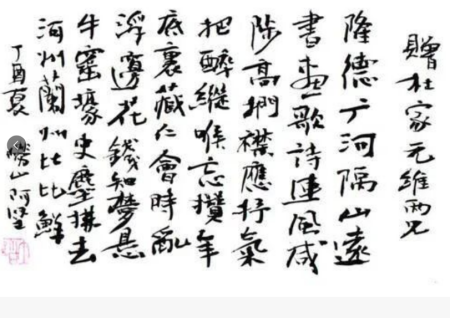 贈杜家元維兩兄
隆德广河隔山遠
書畫歌詩連風感
陟高捫襟應抒氣
把醉縱喉忘攢年
底裏藏仁會時亂
浮邊花錢知夢懸
牛窯史去
河州蘭州比比鮮
丁酉夏 山阿堅